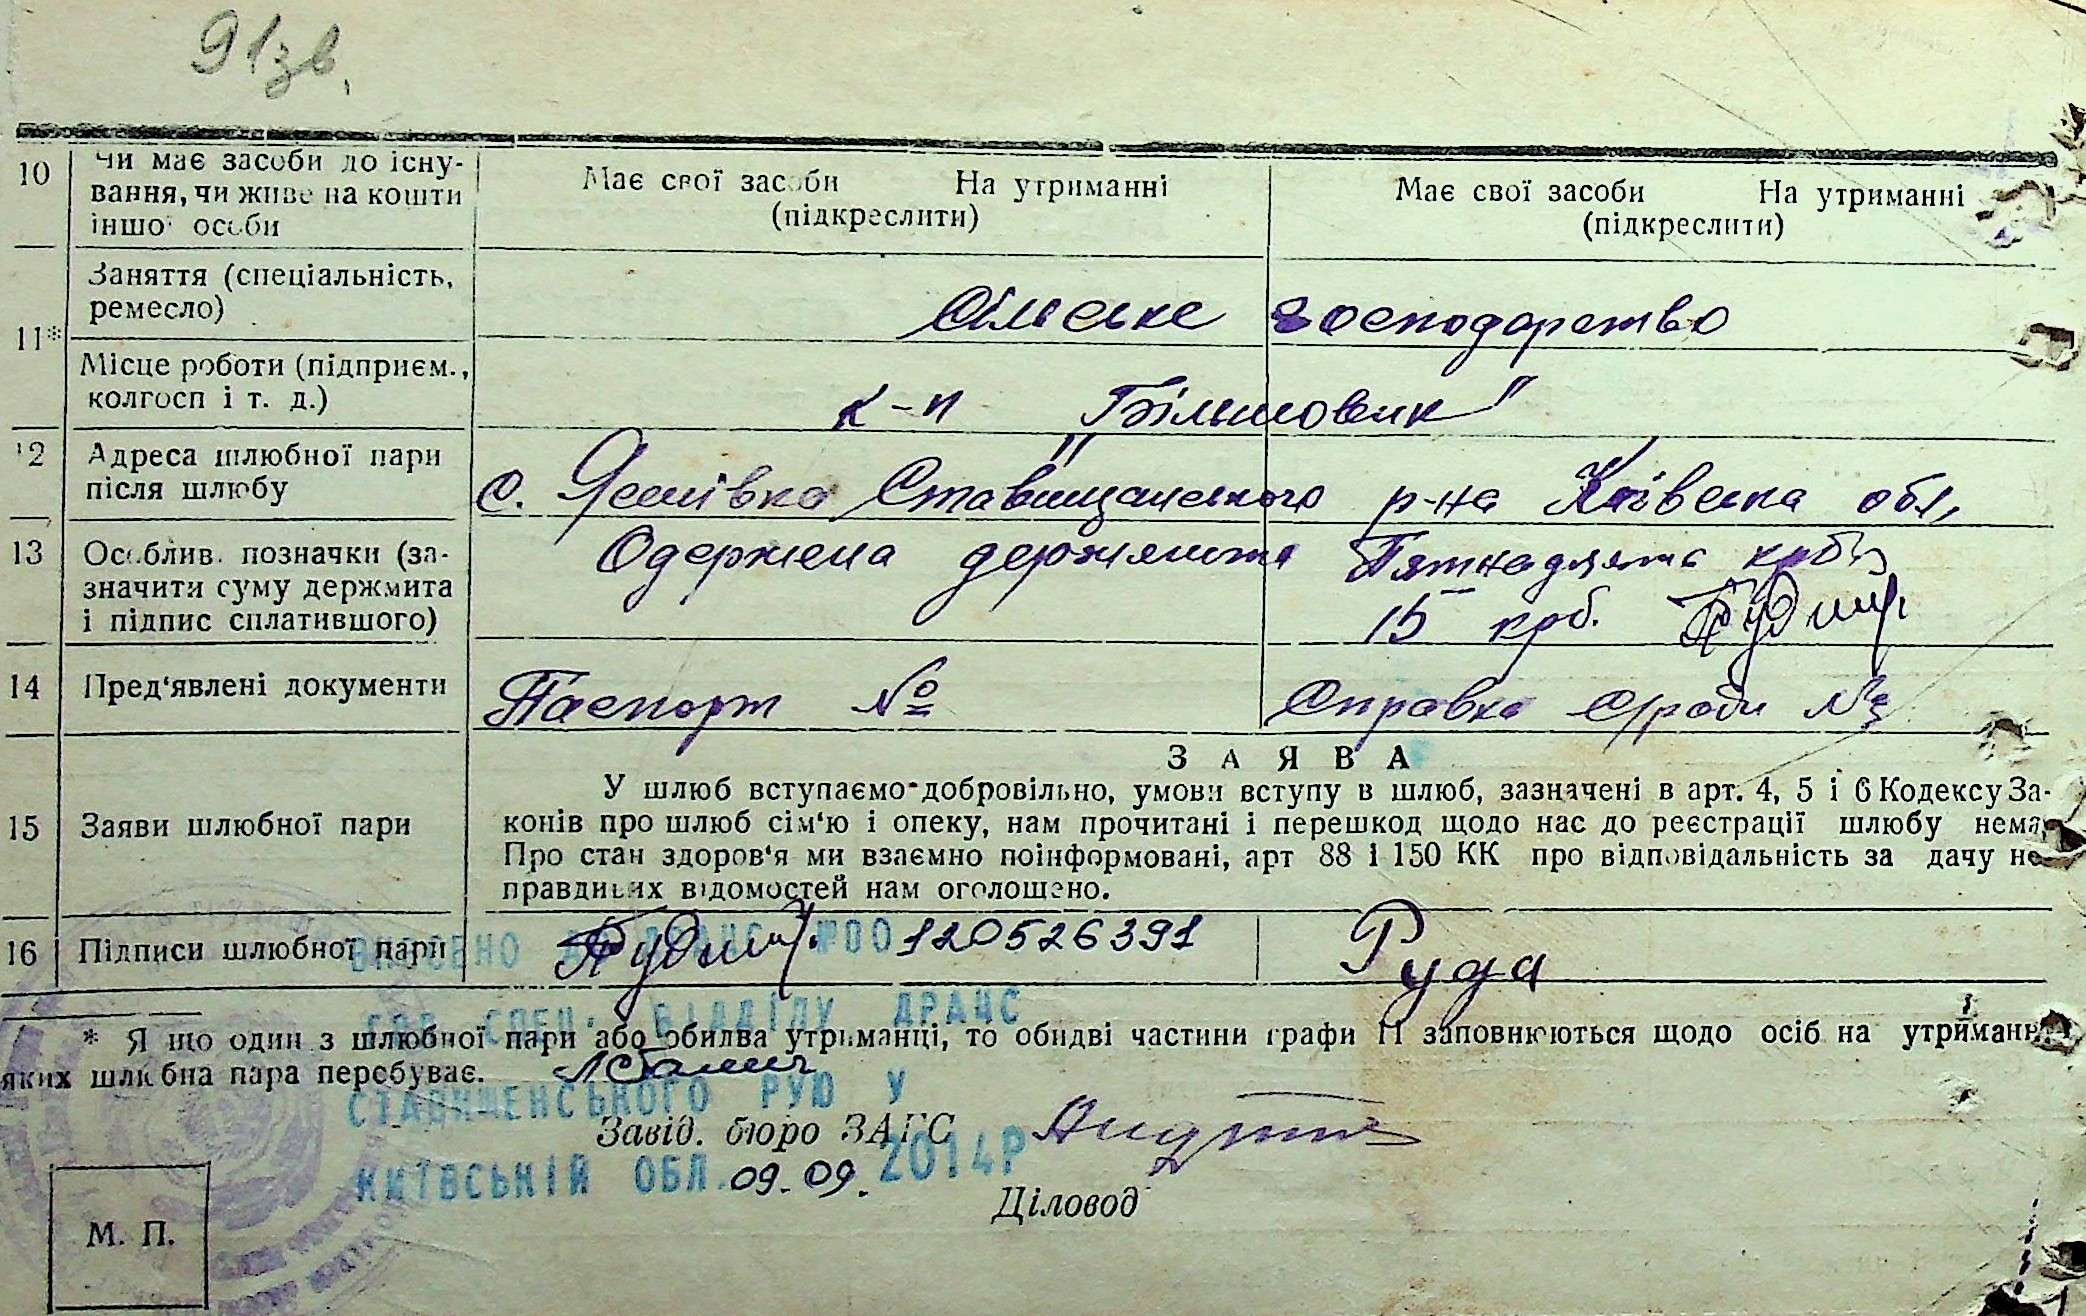 91зв.
10 Чи має засоби до існу-
вання, чи живе на кошти
іншо осоьби
Має свої засоби На утриманні
(підкреслити)
Має свої засоби На утриманні
(підкреслити)
11* Заняття (спеціальність,
ремесло)
Сільське господарство
Місце роботи (підприєм.,
колгосп і т. д.)
к-п "Більшовик"
12 Адреса шлюбної пари
після шлюбу
с. Ясинівка Ставищанського р-на Київська обл,
13 Особлив. позначки (за-
значити суму держмита
і підпис сплатившого)
Одержена держмита Пятнадцять крб
15 крб.
14 Пред'явлені документи
Паспорт №
Справка с/ради №
15 Заяви шлюбної пари
ЗАЯВА
У шлюб вступаємо добровільно, умови вступу в шлюб, зазначені в арт. 4, 5 і 6 Кодексу За-
конів про шлюб сім'ю і опеку, нам прочитані і перешкод щодо нас до реєстрації шлюбу нема,
Про стан здоров'я ми взаємно поінформовані, арт 88 і 150 КК про відповідальність за дачу не
правдивих відомостей нам оголошено.
16 Підписи шлюбної пари
№00120526391
Руда
ВНЕСЕНО ДО ДРАЦС
СПЕЦ. ВІДДІЛУ ДРАЦС
* Я що один з шлюбної пари або обидва утриманці, то обидві частини графи 11 заповнюються щодо осіб на утриманн
яких шлюбна пара перебуває.
СТАВИЩЕНСЬКОГО РУЮ У
Завід. бюро ЗАГС
КИЇВСЬКІЙ ОБЛ. 09.09. 2014Р
Діловод
М. П.